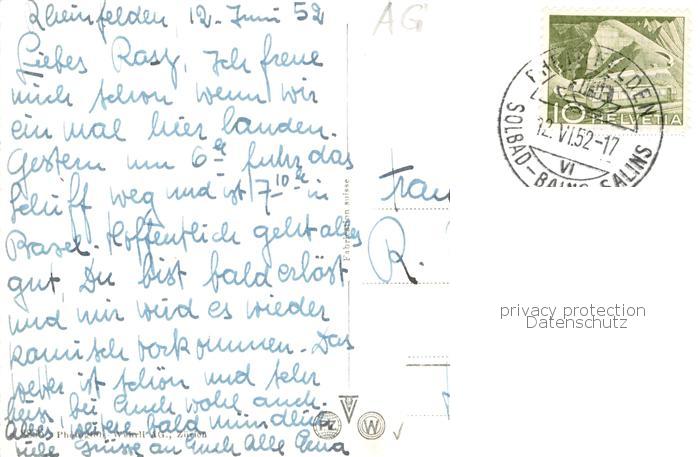 Rheinfelden 12. Juni 52
AG
Liebes Rosy, Ich freue
mich schon wenn wir
ein mal hier landen.
Gestern um 6 fuhr das
Schiff weg und ist 7 10 in
Basel. Hoffentlich geht alles
gut, Du bist bald erlöst
und mir wird es wieder
komisch vorkommen. Das
Wetter ist schön und sehr
heiss bei Euch wohl auch.
Alles weitere bald mündlich
viele Grüsse an Euch Alle
Photogr. Wehrli AG., Zürich
Fabrication suisse
Frau
R.
PZ
W
10 HELVETIA
RHEINFELDEN
12.VI.52-17
VI
SOLBAD-BAINS SALINS
privacy protection
Datenschutz